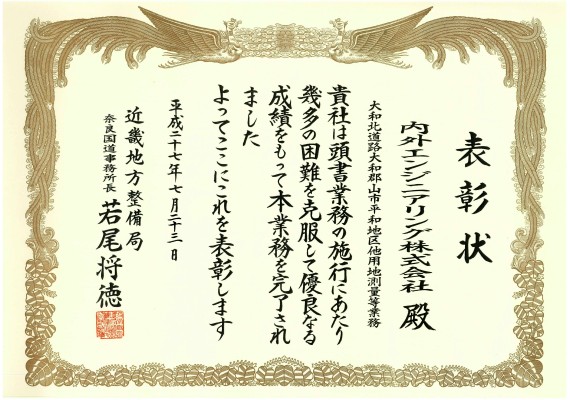 表彰状
内外エンジニアリング株式会社 殿
大和北道路大和郡山市平和地区他用地測量等業務
貴社は頭書業務の施行にあたり
幾多の困難を克服して優良なる
成績をもって本業務を完了され
ました
よってここにこれを表彰します
平成二十七年七月二十三日
近畿地方整備局
奈良国道事務所長 若尾将徳